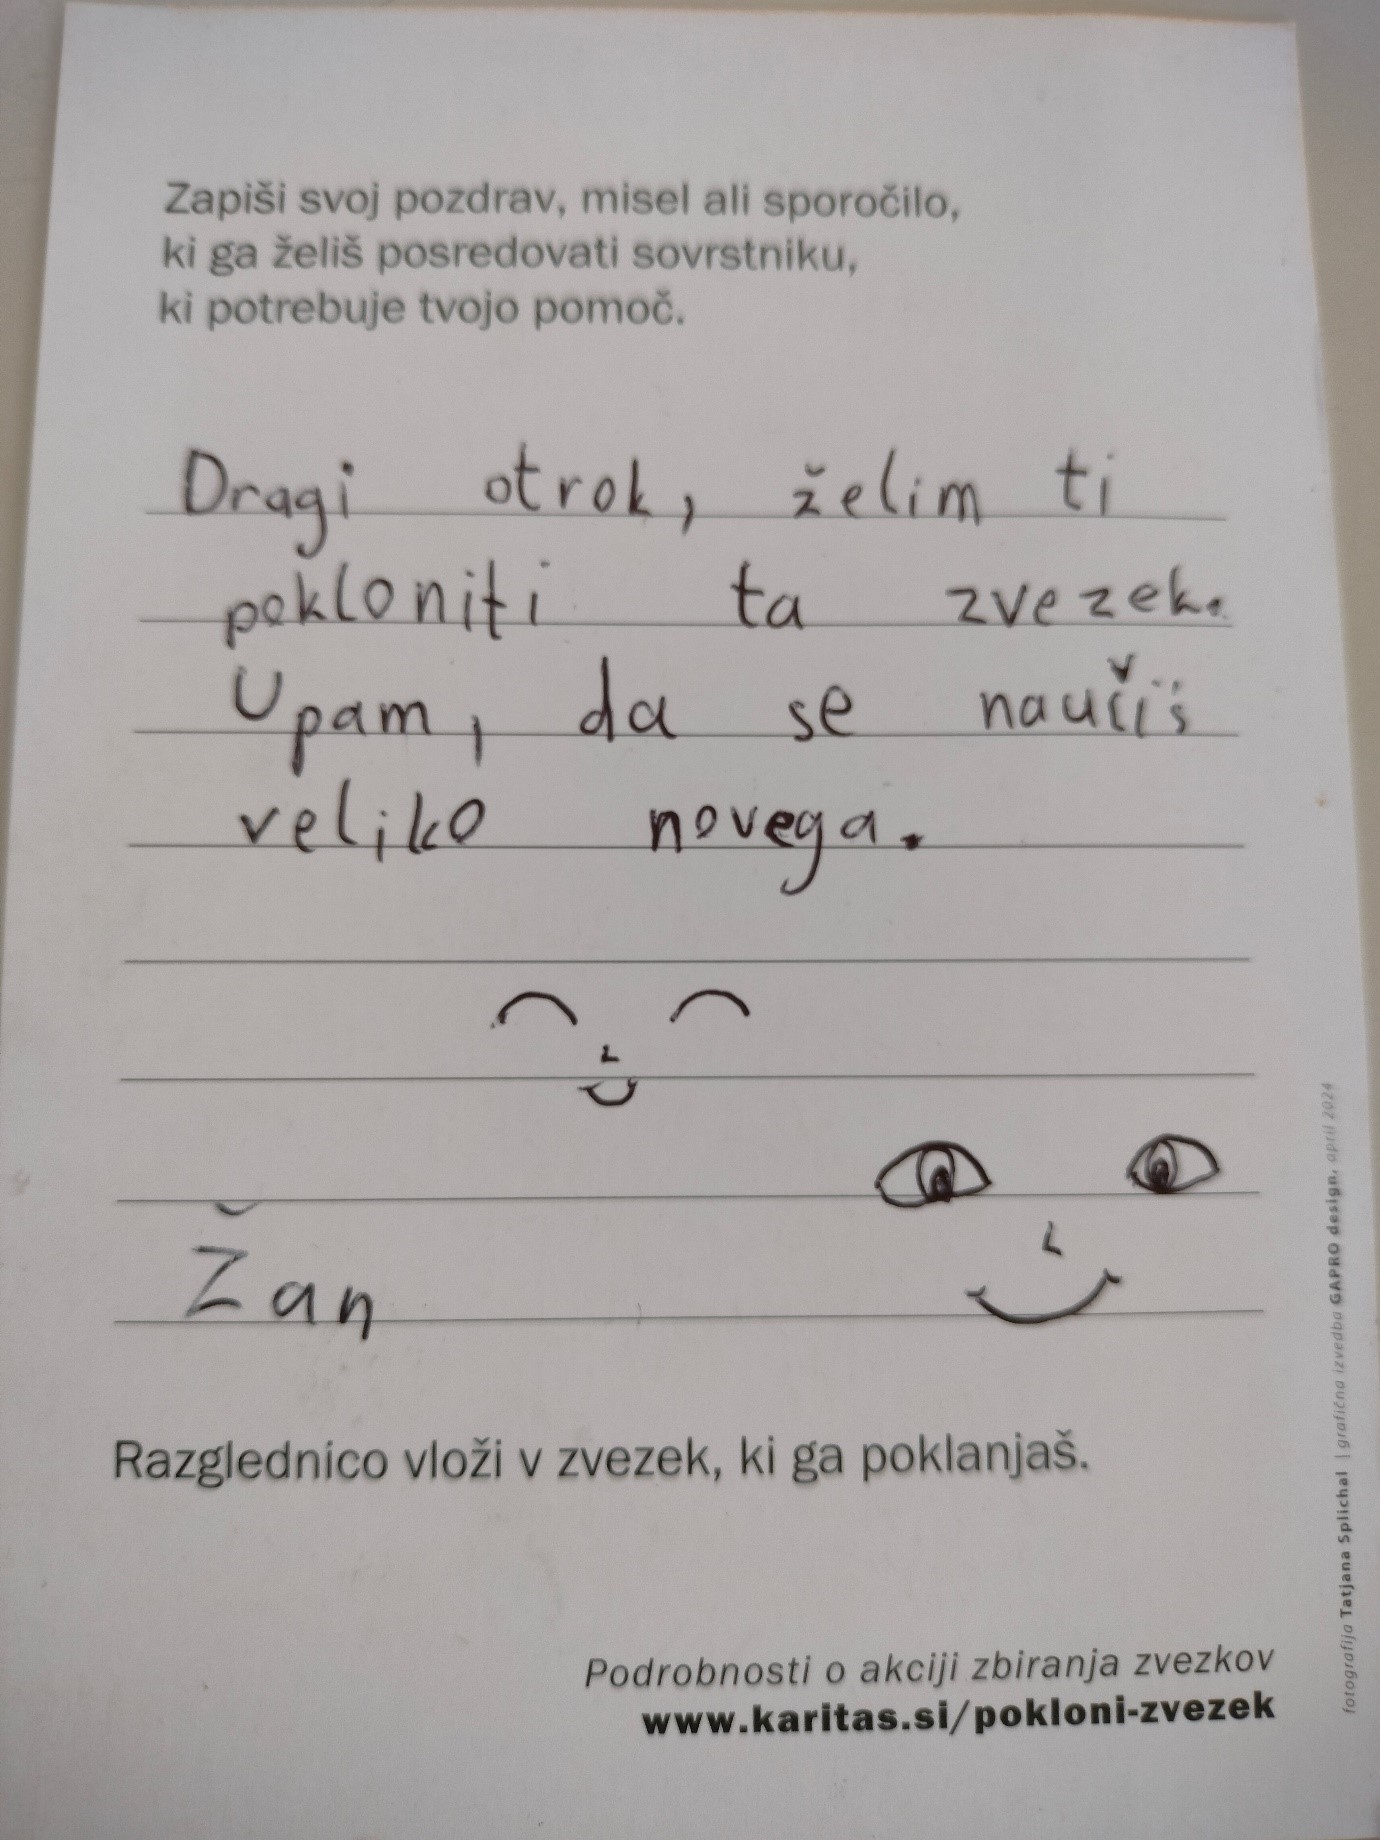 Zapiši svoj pozdrav, misel ali sporočilo,
ki ga želiš posredovati sovrstniku,
ki potrebuje tvojo pomoč.
Dragi otrok, želim ti
pokloniti ta zvezek.
Upam, da se naučiš
veliko novega.
Žan
Razglednico vloži v zvezek, ki ga poklanjaš.
Podrobnosti o akciji zbiranja zvezkov
www.karitas.si/pokloni-zvezek
fotografija Tatjana Splichal | grafična izvedba GAPRO design, april 2024